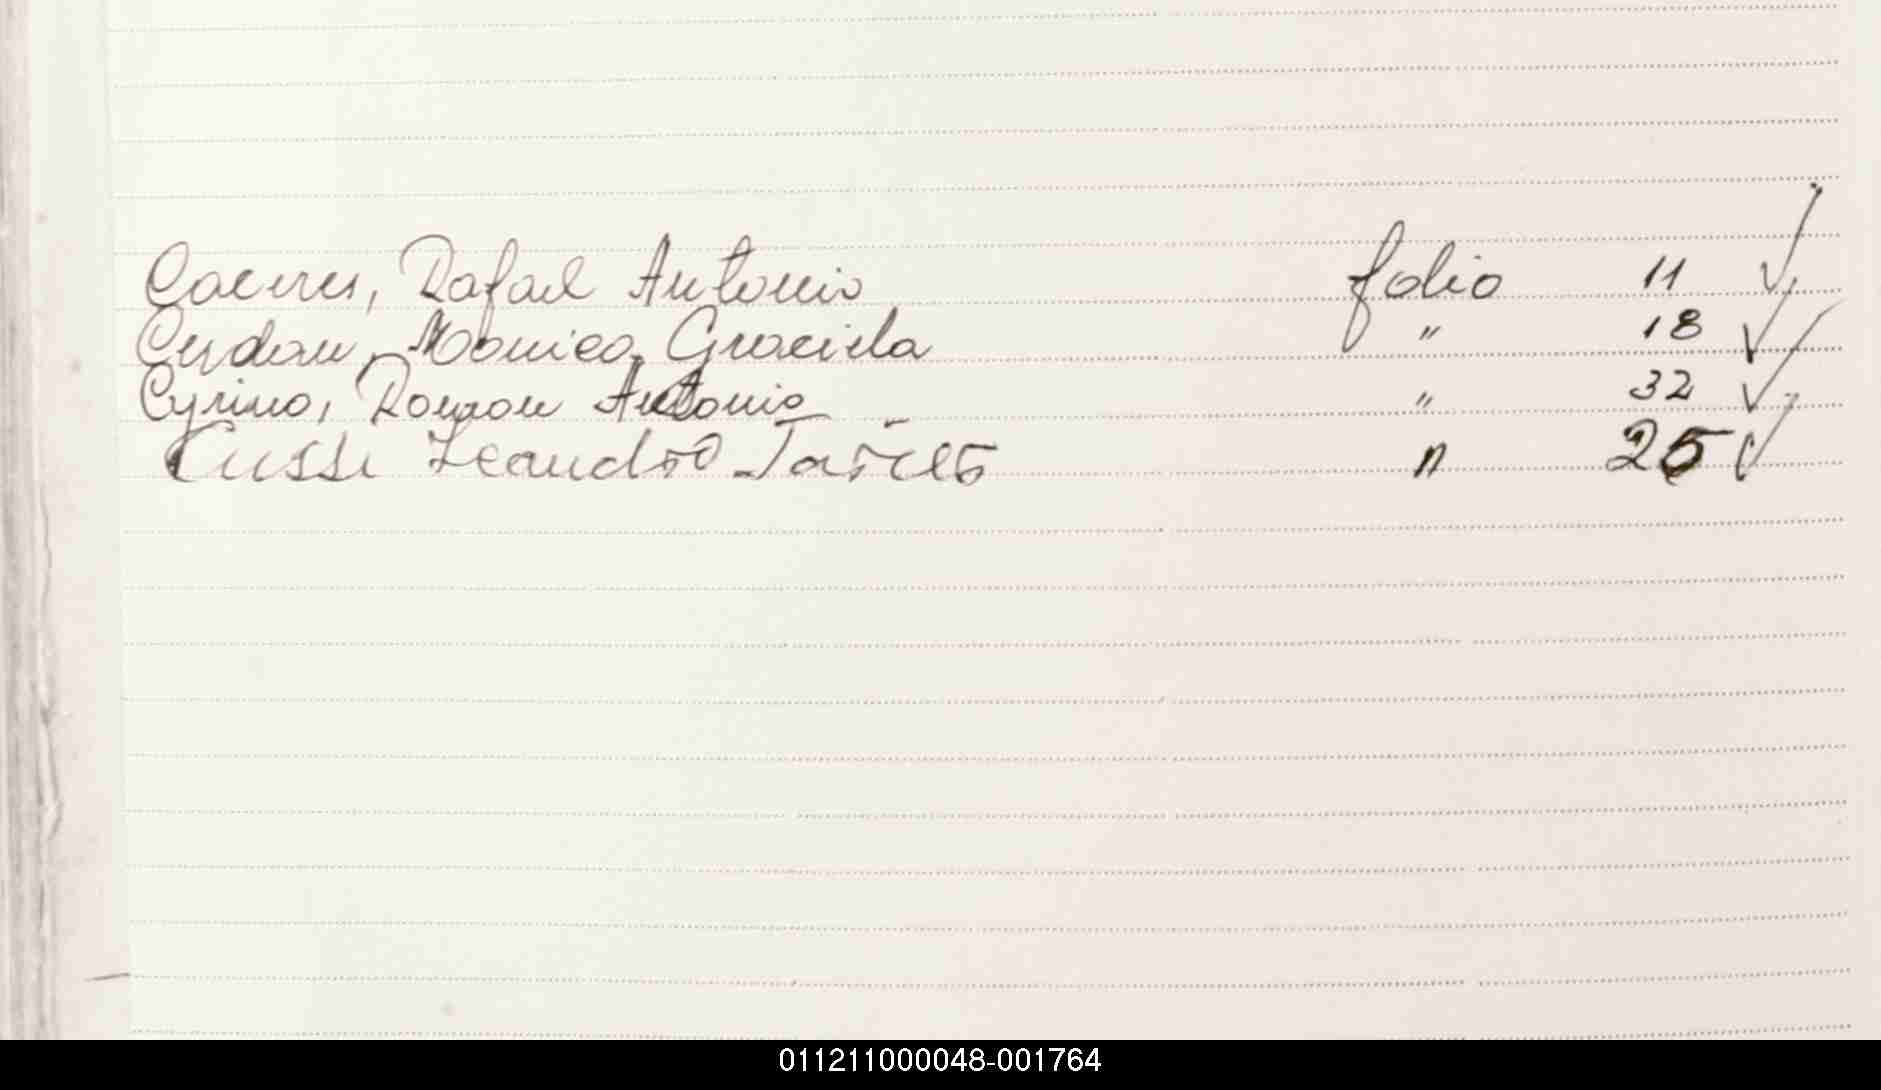 Caceres, Rafael Antonio folio 11
Cerdan, Monica Graciela " 18
Cyrino, Roman Antonio " 32
Cussi Leandro " 25
011211000048-001764